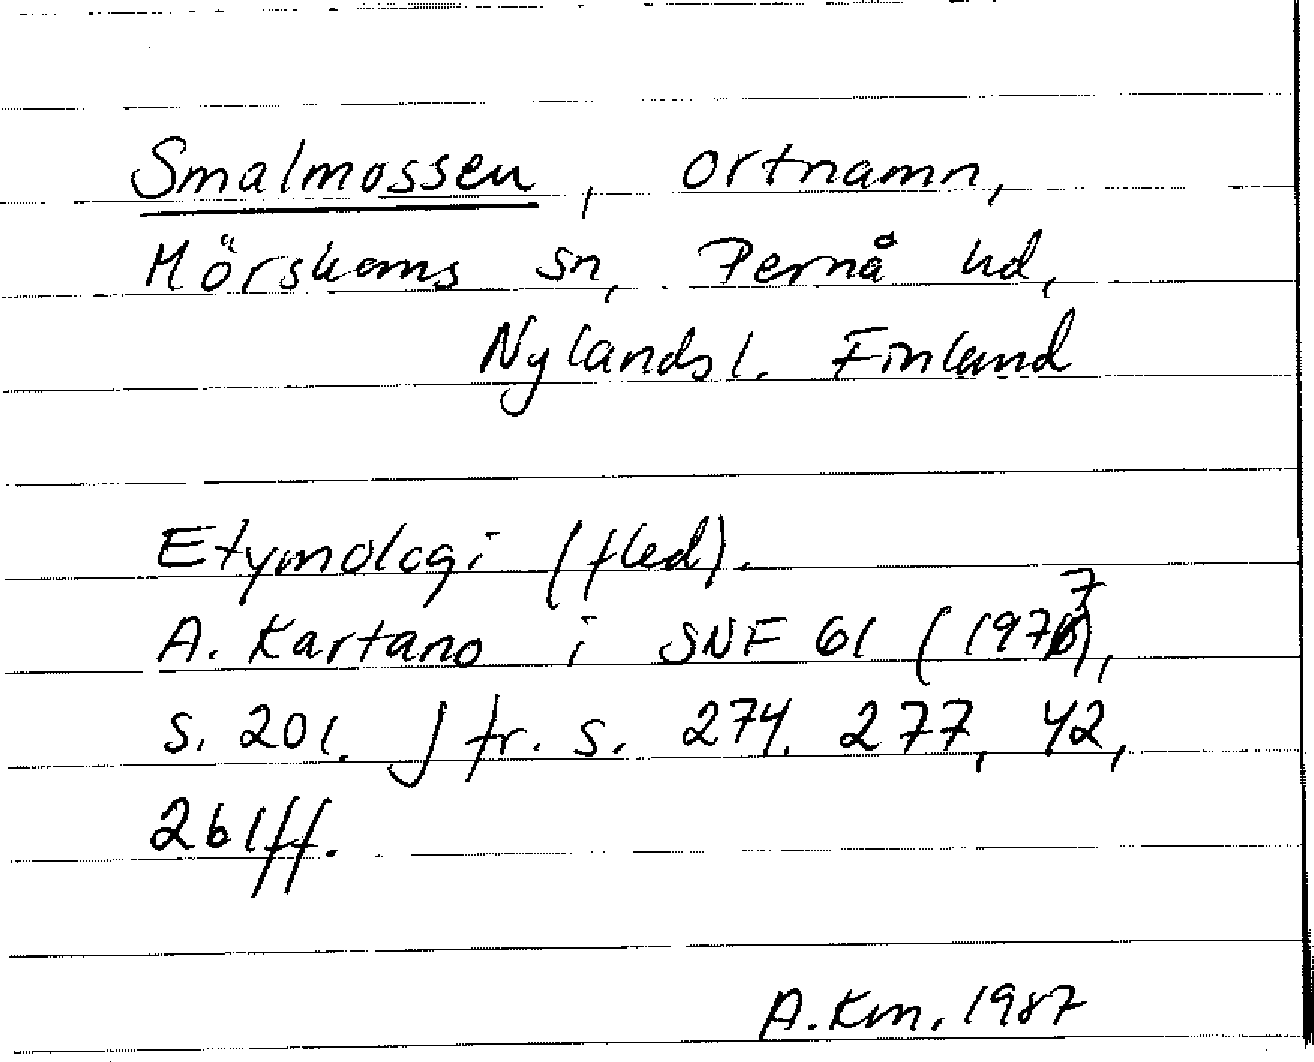 Smalmossen, ortnamn,
Mörskoms sn, Pernå hd,
Nylands l. Finland
Etymologi (fled).
A. Kartano i SNF 61 (1977),
s. 201. Jfr. s. 274. 277, 42,
261ff.
A.Km. 1987